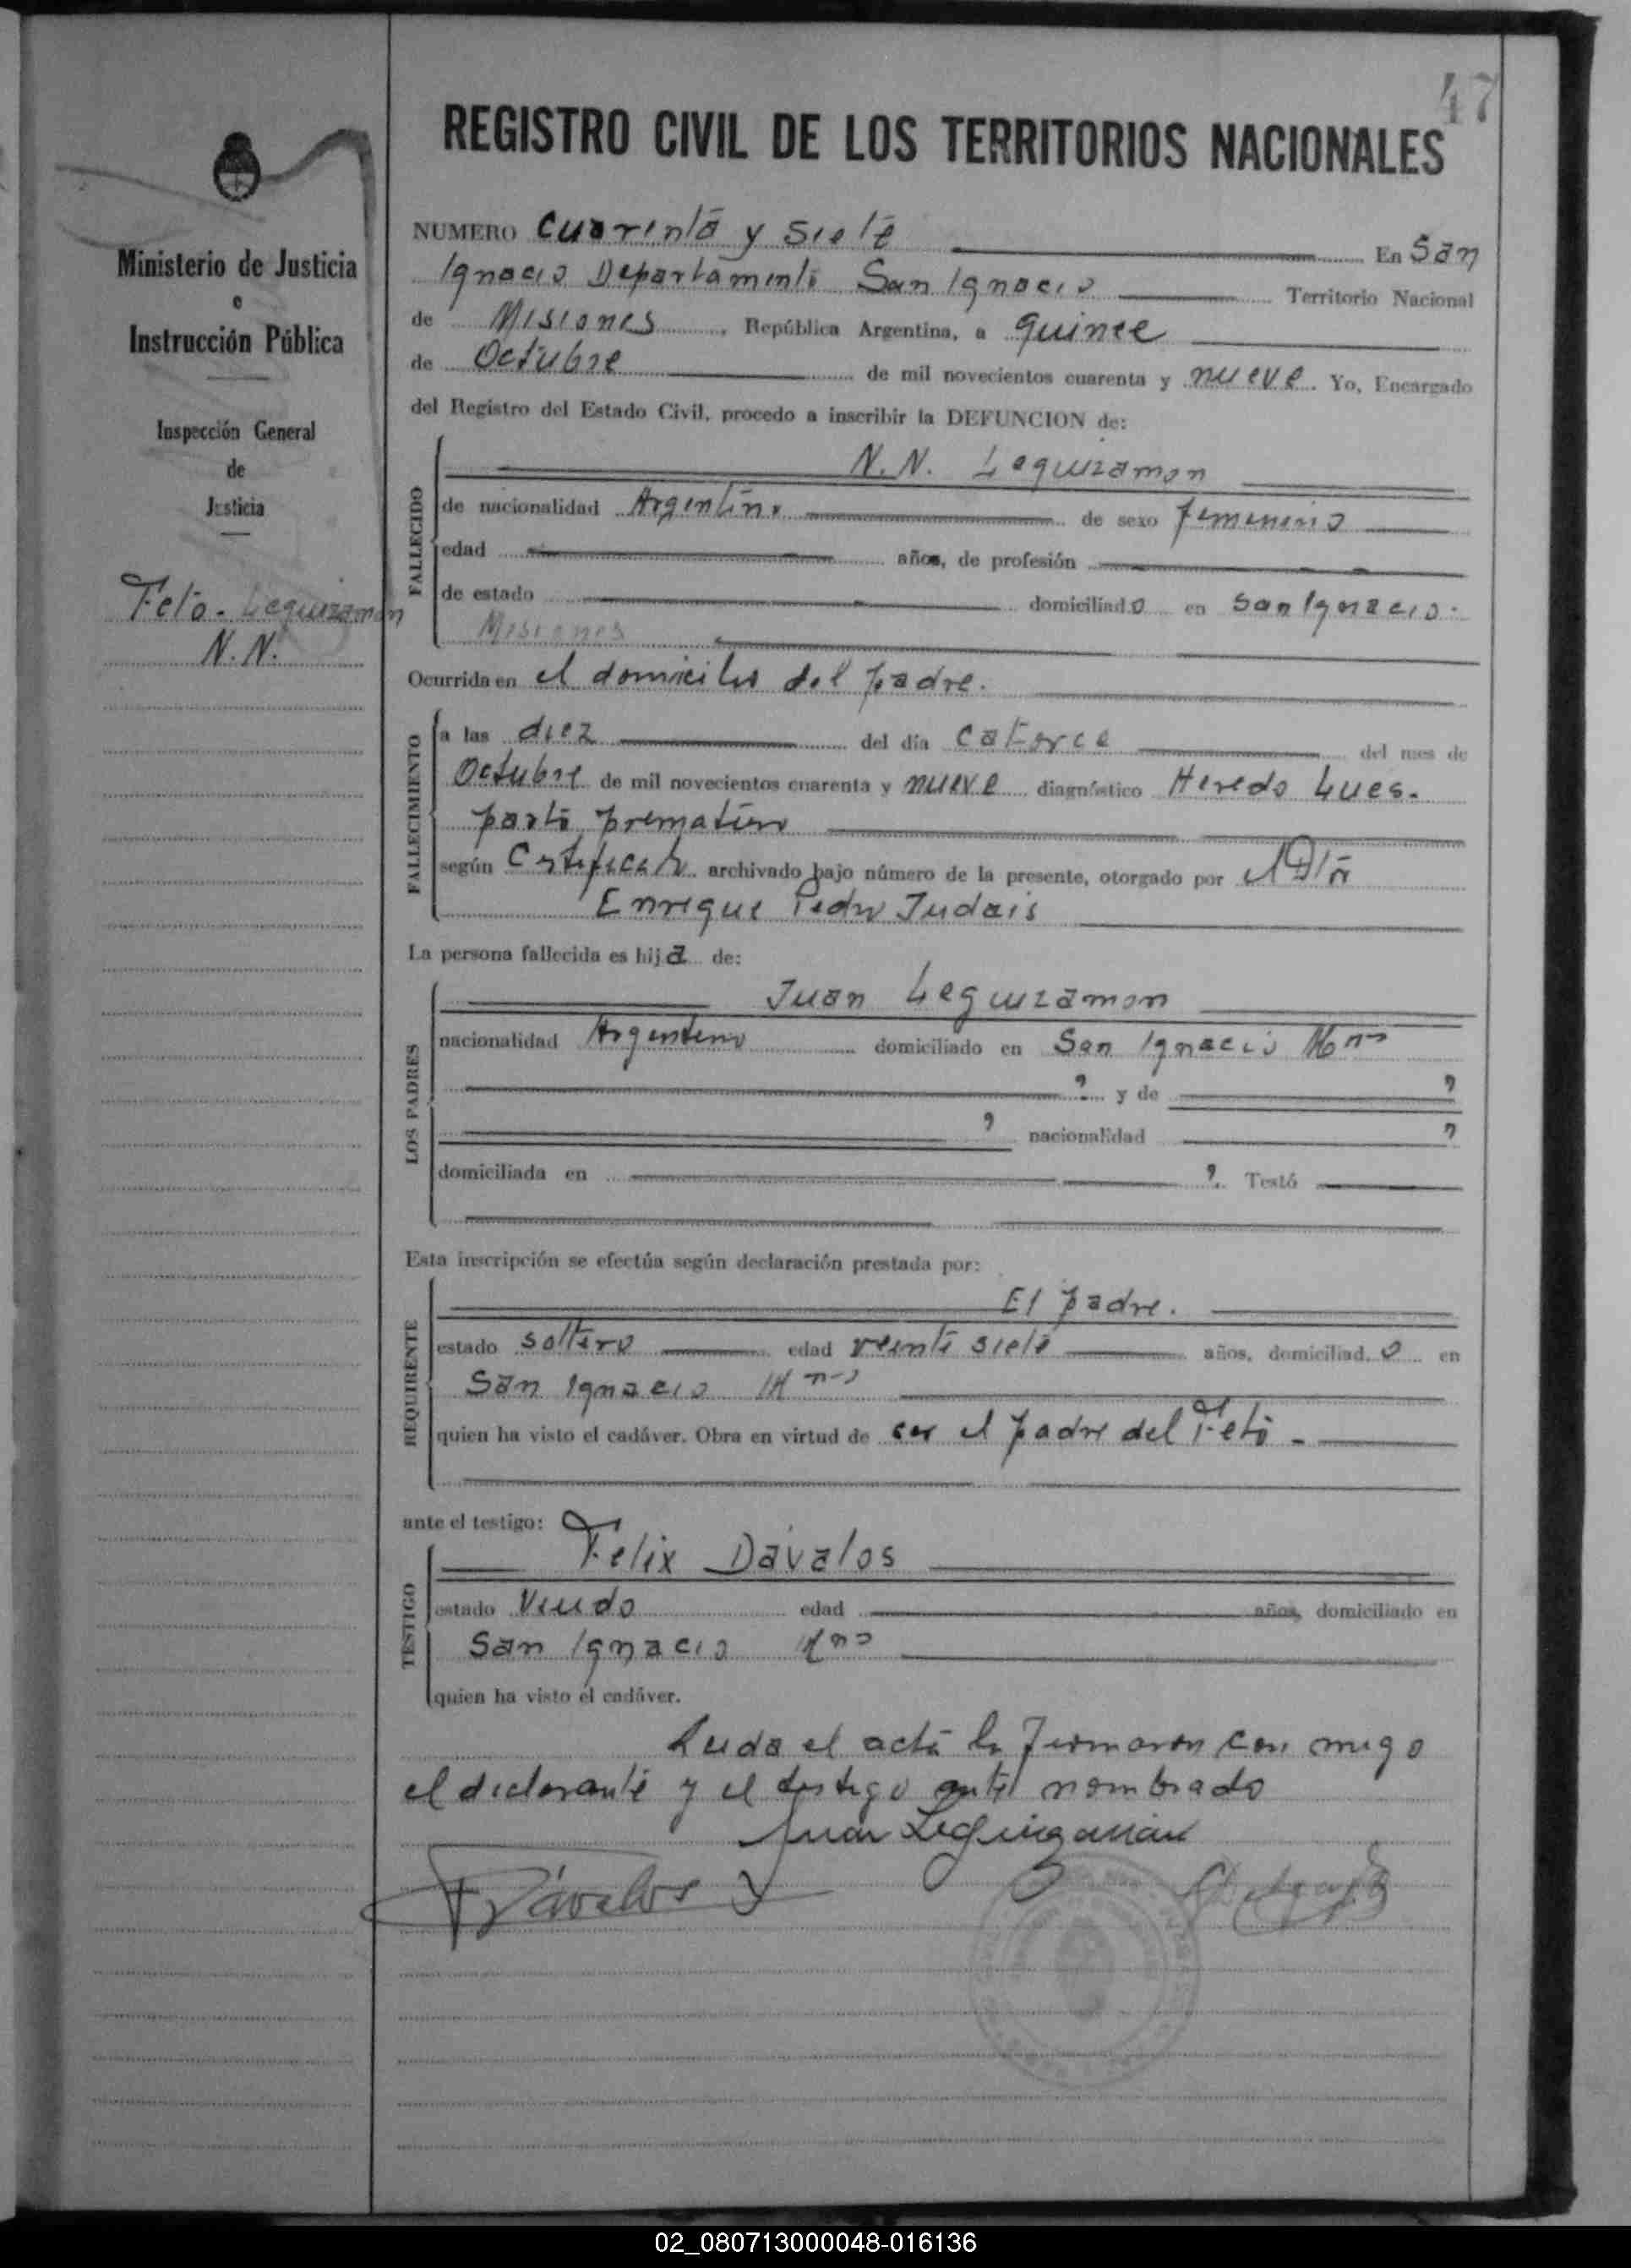 47
REGISTRO CIVIL DE LOS TERRITORIOS NACIONALES
Ministerio de Justicia
e
Instrucción Pública
Inspección General
de
Justicia
Feto - Leguizamon
N.N.
NUMERO Cuarenta y Siete En San
Ignacio Departamento San Ignacio Territorio Nacional
de Misiones, República Argentina, a quince
de Octubre de mil novecientos cuarenta y nueve. Yo, Encargado
del Registro del Estado Civil, procedo a inscribir la DEFUNCION de:
N. N. Leguizamon
FALLECIDO
de nacionalidad Argentina de sexo femenino
edad años, de profesión
de estado domiciliado en San Ignacio.
Misiones
Ocurrida en el domicilio del padre.
FALLECIMIENTO
a las diez del día Catorce del mes de
Octubre de mil novecientos cuarenta y nueve diagnóstico Heredo Lues.
parto prematuro
según Certificado archivado bajo número de la presente, otorgado por el
Enrique Pedro Judais
La persona fallecida es hija de:
Juan Leguizamon
LOS PADRES
nacionalidad Argentino domiciliado en San Ignacio Mnes
? y de ?
? nacionalidad ?
domiciliada en ?. Testó
Esta inscripción se efectúa según declaración prestada por:
El padre.
REQUIRENTE
estado soltero edad veinte siete años, domiciliado en
San Ignacio Mnes
quien ha visto el cadáver. Obra en virtud de ser el padre del Feto -
ante el testigo:
Felix Dávalos
TESTIGO
estado Viudo edad años, domiciliado en
San Ignacio Mnes
quien ha visto el cadáver.
Leida el acta la firmaron con migo
el declarante y el testigo ante nombrado
Juan Leguizamon
F Dávalos
02_080713000048-016136